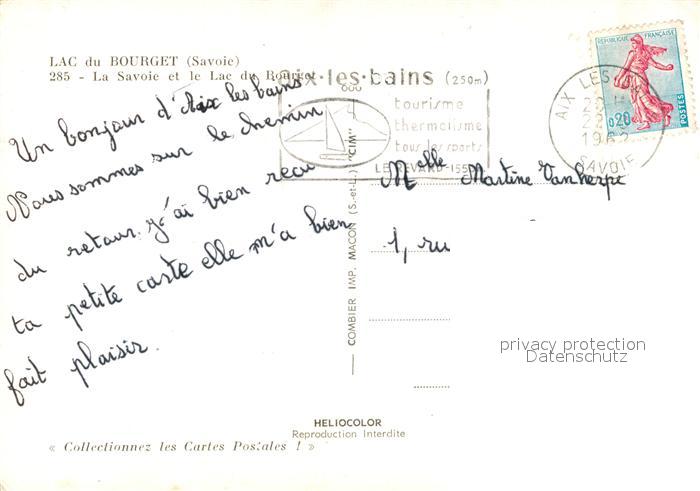 LAC du BOURGET (Savoie)
285 - La Savoie et le Lac du Bourget
Un bonjour d'Aix les bains
Nous sommes sur le chemin
du retour. J'ai bien recu
ta petite carte elle m'a bien
fait plaisir.
« Collectionnez les Cartes Postales ! »
aix·les·bains (250m)
tourisme
thermalisme
tous les sports
LE REVARD-155
COMBIER IMP. MACON (S.-et-L.) "CIM"
REPUBLIQUE FRANÇAISE
0,20
POSTES
AIX LES
196
SAVOIE
Melle Martine Vanherpe
1, ru
privacy protection
Datenschutz
HELIOCOLOR
Reproduction Interdite